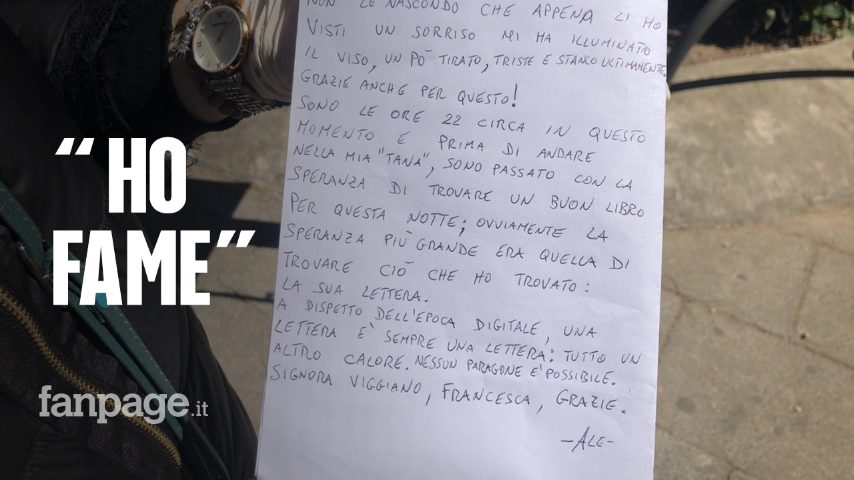 NON LE NASCONDO CHE APPENA LI HO
VISTI UN SORRISO MI HA ILLUMINATO
IL VISO, UN PÒ TIRATO, TRISTE E STANCO ULTIMAMENTE.
GRAZIE ANCHE PER QUESTO!
SONO LE ORE 22 CIRCA IN QUESTO
MOMENTO E PRIMA DI ANDARE
NELLA MIA "TANA", SONO PASSATO CON LA
SPERANZA DI TROVARE UN BUON LIBRO
PER QUESTA NOTTE; OVVIAMENTE LA
SPERANZA PIÙ GRANDE ERA QUELLA DI
TROVARE CIÒ CHE HO TROVATO:
LA SUA LETTERA.
A DISPETTO DELL'EPOCA DIGITALE, UNA
LETTERA E' SEMPRE UNA LETTERA: TUTTO UN
ALTRO CALORE. NESSUN PARAGONE E' POSSIBILE.
SIGNORA VIGGIANO, FRANCESCA, GRAZIE.
-ALE-
“HO
FAME”
fanpage.it